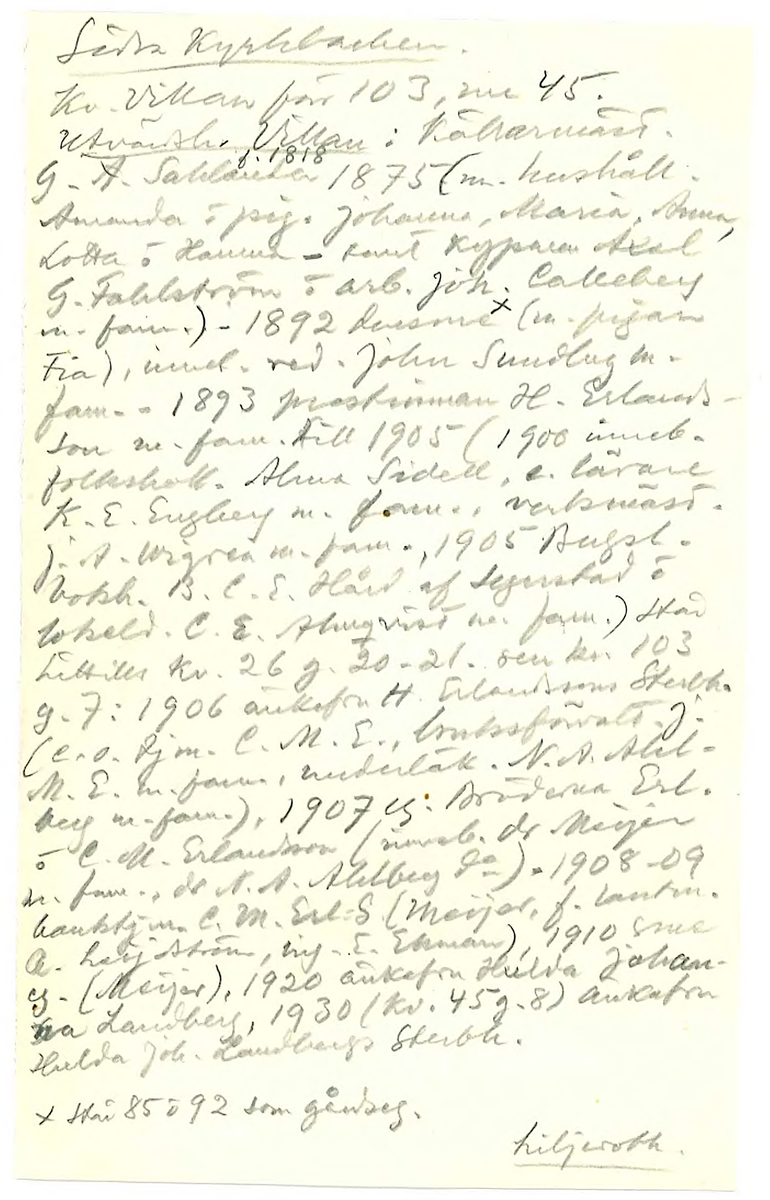 Södra Kyrkbacken.
Kv. Villan förr 103, nu 45.
Villan : Källarmäst.
f. 1818
G. A. 1875 (m. hushåll.
Amanda o pig. Johanna, Maria, Anna,
Lotta o Hanna – samt kyparen Axel
G. Fahlström o arb. Joh. Calleberg
m. fam.) – 1892 densme x (m. pigan
Fia), inneb. red. John Sundberg m.
fam. – 1893 prostinnan H. Erlands-
son m. fam. till 1905 (1900 inneb.
folkskoll. Alma Sidell, e. lärare
K. E. Engberg m. fam., verkmäst.
J. A. m. fam., 1905 Bugst.
bokh. B. C. E. Hård af Segerstad o
C. E. Almqvist m. fam.) Står
hittills Kv. 26 g. 20-21. sen kv. 103
g. 7: 1906 änkefru H. Erlandssons Sterbh.
(e. o. tjm. C. M. E., bruksförvalt. J.
M. E. m. fam., underläk. N. A. Ahl-
berg m. fam.), 1907 eg. Bröderna Erl.
o C. M. Erlandsson (inneb. dr Meijer
m. fam., dr N. A. Ahlberg do) – 1908-09
banktjm. C. M. Erl-s (Meijer, f. lantm.
A. Leijdström, ing. E. Ekman), 1910 sme
eg. (Meijer), 1920 änkefru Hulda Johan-
na Landberg, 1930 (kv. 45 g. 8) änkefru
Hulda Joh. Landbergs Sterbh.
x Står 85 o 92 som gårdseg.
Liljeroth.